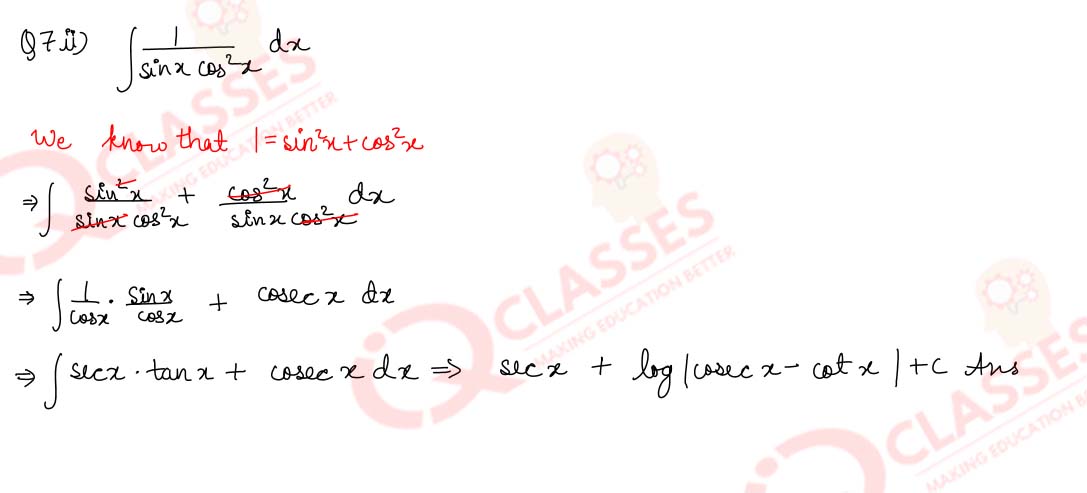 Q7.ii) ∫ 1/(sinx cos²x) dx
We know that 1 = sin²x + cos²x
⇒ ∫ sin²x/(sinx cos²x) + cos²x/(sinx cos²x) dx
⇒ ∫ 1/cosx · sinx/cosx + cosec x dx
⇒ ∫ secx · tanx + cosec x dx ⇒ secx + log|cosec x - cot x| + C Ans
CLASSES
MAKING EDUCATION BETTER
CLASSES
MAKING EDUCATION BETTER
CLASSES
MAKING EDUCATION BE